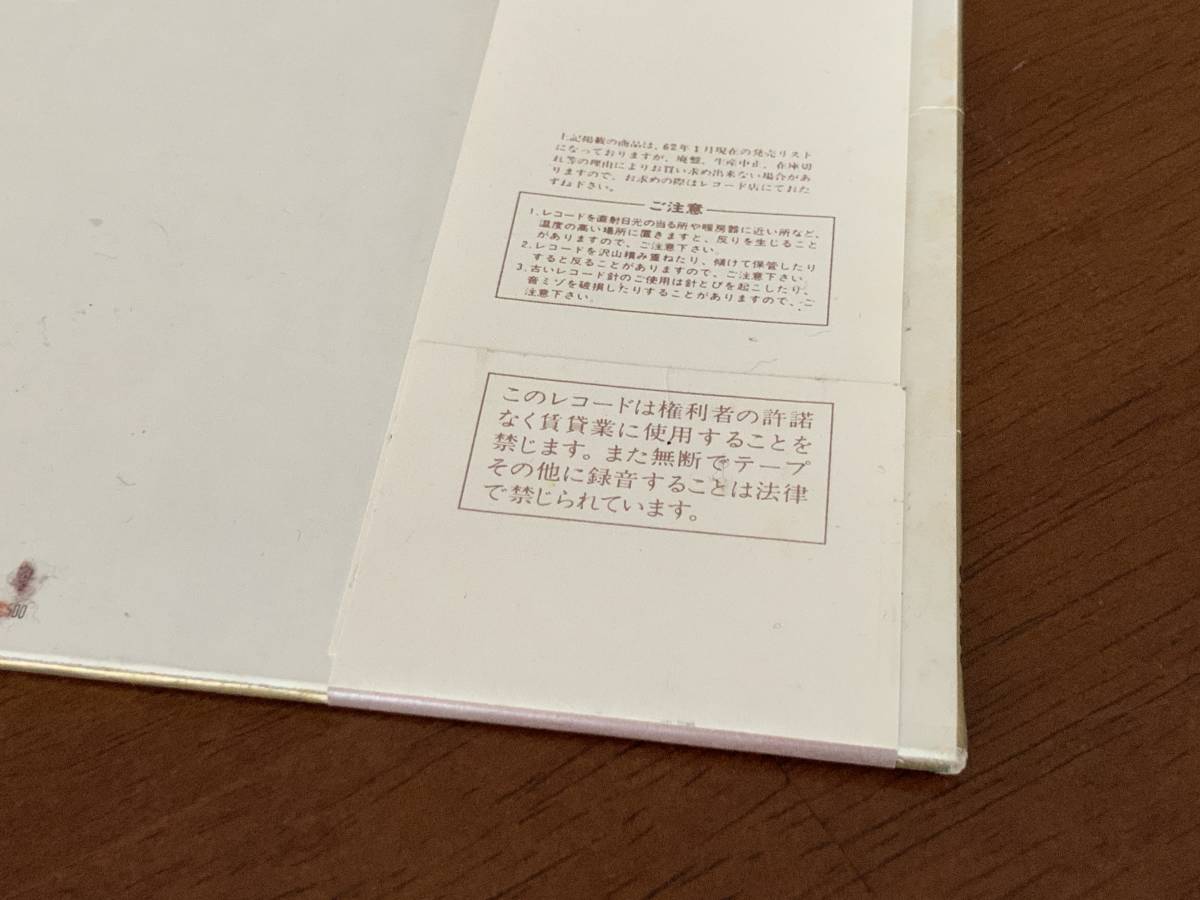 上記掲載の商品は、62年1月現在の発売リスト
になっておりますが、廃盤、生産中止、在庫切
れ等の理由によりお買い求め出来ない場合があ
りますので、お求めの際はレコード店にておた
ずね下さい。
ご注意
1. レコードを直射日光の当る所や暖房器に近い所など、
温度の高い場所に置きますと、反りを生じること
がありますので、ご注意下さい。
2. レコードを沢山積み重ねたり、傾けて保管したり
すると反ることがありますので、ご注意下さい。
3. 古いレコード針のご使用は針とびを起こしたり、
音ミゾを破損したりすることがありますので、ご
注意下さい。
このレコードは権利者の許諾
なく賃貸業に使用することを
禁じます。また無断でテープ
その他に録音することは法律
で禁じられています。